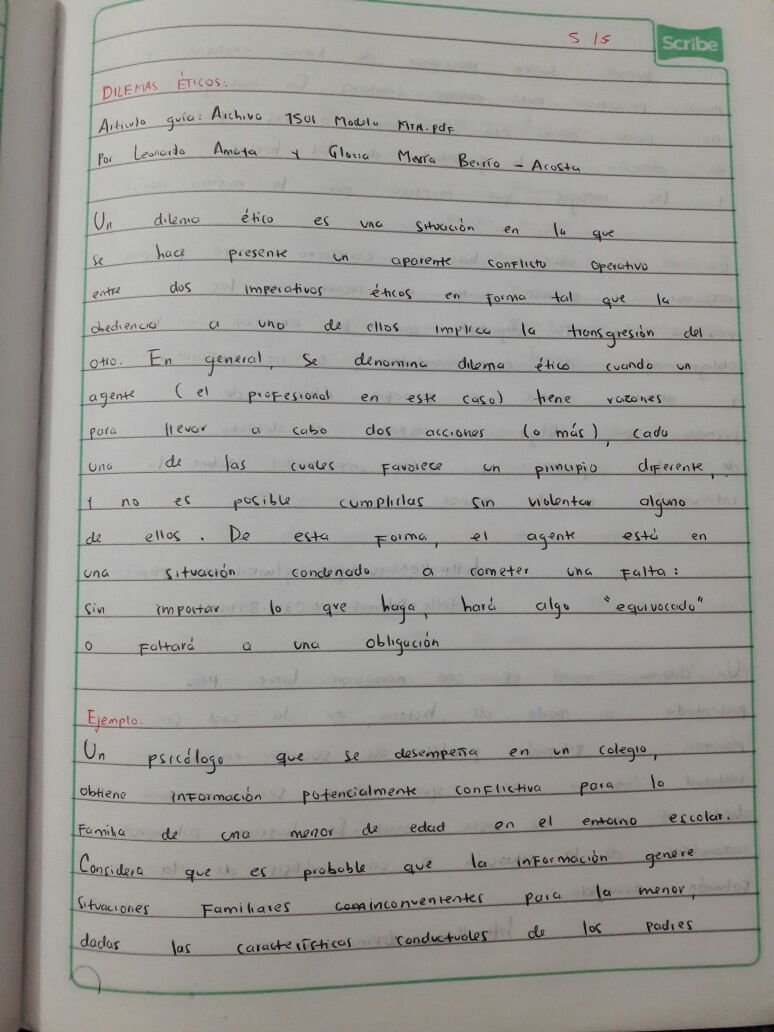 5 15
Scribe
DILEMAS ÉTICOS:
Artículo guía: Archivo 1501 Modulo MTM.pdf
Por Leonardo Amaya y Gloria María Berrío - Acosta
Un dilema ético es una situación en la que
se hace presente un aparente conflicto operativo
entre dos imperativos éticos en forma tal que la
obediencia a uno de ellos implica la transgresión del
otro. En general, se denomina dilema ético cuando un
agente (el profesional en este caso) tiene razones
para llevar a cabo dos acciones (o más), cada
una de las cuales favorece un principio diferente,
y no es posible cumplirlas sin violentar alguno
de ellos. De esta forma, el agente está en
una situación condenado a cometer una falta:
sin importar lo que haga, hará algo "equivocado"
o faltará a una obligación
Ejemplo:
Un psicólogo que se desempeña en un colegio,
obtiene información potencialmente conflictiva para la
familia de una menor de edad en el entorno escolar.
Considera que es probable que la información genere
situaciones familiares inconvenientes para la menor,
dadas las características conductuales de los padres